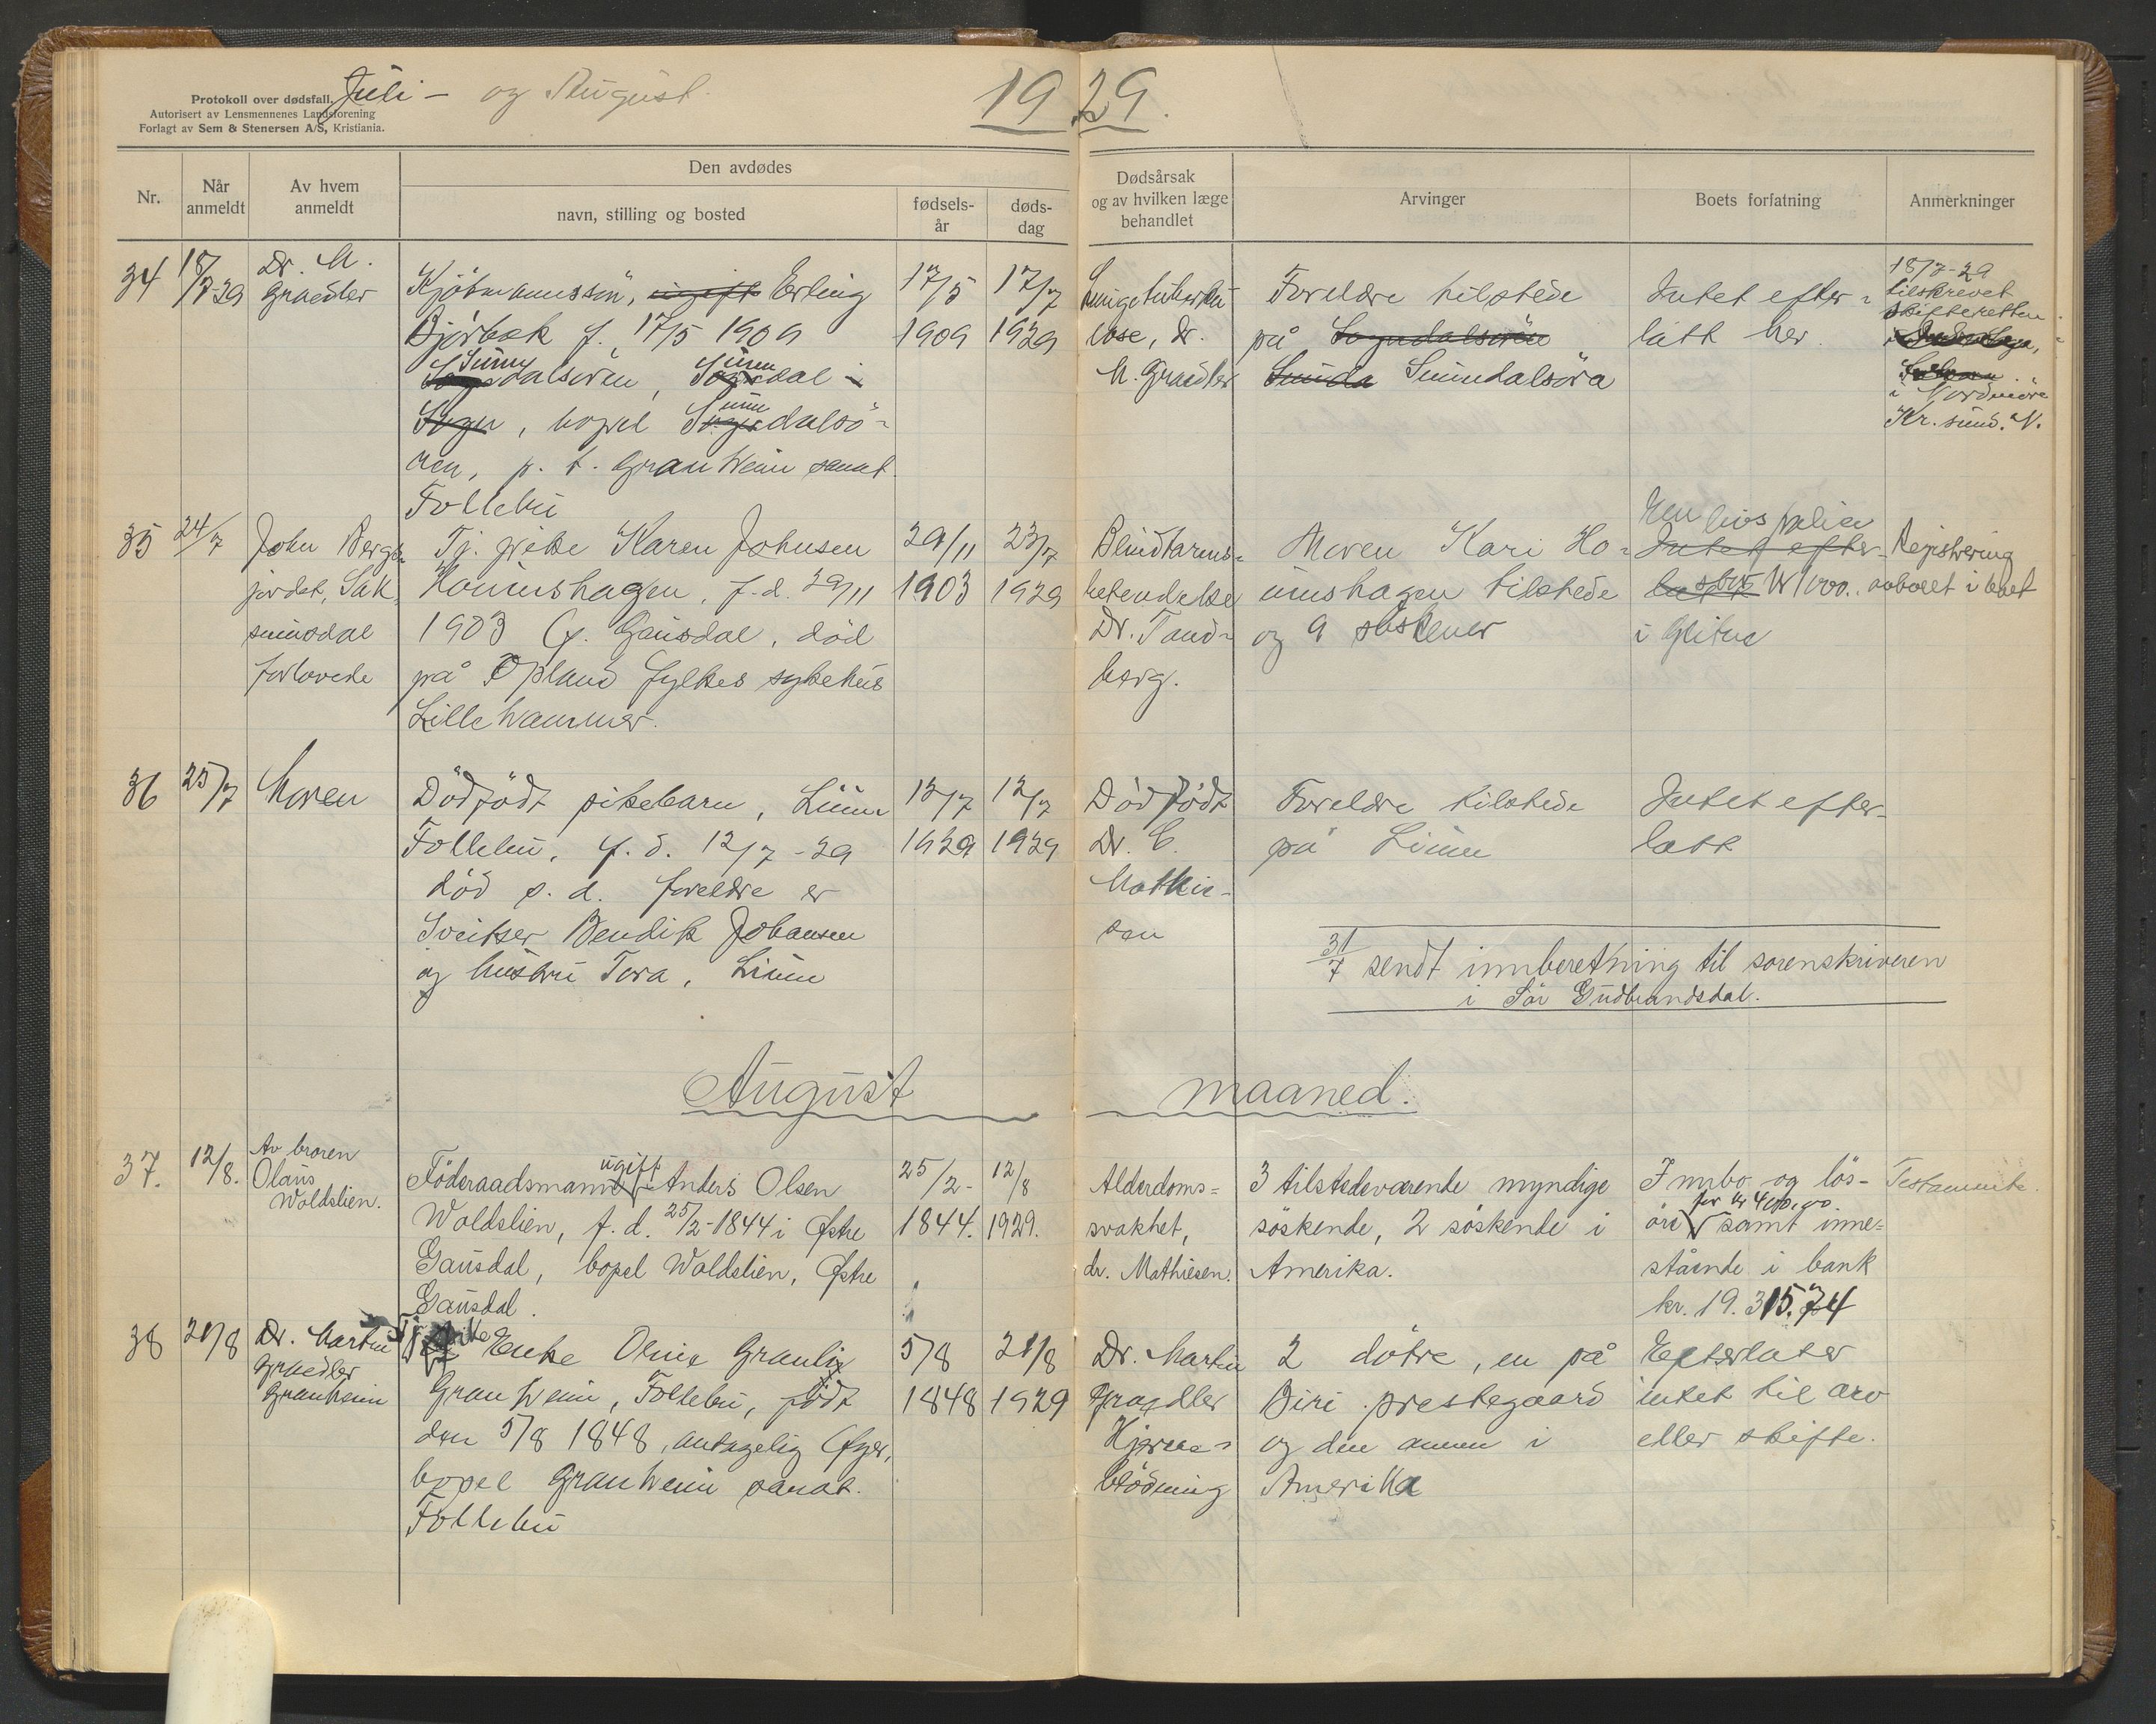 Juli - og August.
1929.
Protokoll over dødsfall.
Autorisert av Lensmennenes Landsforening
Forlagt av Sem & Stenersen A/S, Kristiania.
Nr.
Når anmeldt
Av hvem anmeldt
Den avdødes
navn, stilling og bosted
fødsels-år
døds-dag
Dødsårsak og av hvilken læge behandlet
Arvinger
Boets forfatning
Anmerkninger
34
18/7-29
Dr. M.
Graedler
Kjöbmannssön, ugift Erling
Björbæk f. 17/5 1909
Sunndalsören, Sunndal i
Sogn, bopel Sunndalsö-
ren, p. t. Granheim sanat.
Follebu
17/5
1909
17/7
1929
Lungetuberku-
lose, Dr.
M. Graedler
Foreldre tilstede
på Sogndalsören
Sunda Sunndalsöra
Intet efter-
latt her.
18/7-29
tilskrevet
skifteretten
i Nordmöre
Kr.sund. N.
35
24/7
John Bergs-
jordet, Sak-
sumdal
forlovede
Tj. pike Karen Johnsen
Homnshagen, f. d. 29/11
1903 Ø. Gausdal, död
på Opland fylkes sykehus
Lillehammer.
29/11
1903
23/7
1929
Blindtarms-
betendelse
Dr. Tand-
berg.
Moren Kari Ho-
mnshagen tilstede
og 9 söskener
En livspolise
Intet efter-
latt kr 1000.
i Glitne
Registrering
anbaalt i boet
36
25/7
Moren
Dödfödt pikebarn, Linn
Follebu, f. d. 12/7-29
död s. d. foreldre er
Sveitser Bendik Johansen
og hustru Tora, Linn
12/7
1929
12/7
1929
Dödfödt
Dr. C.
Mathie-
sen
Foreldre tilstede
på Linn
Intet efter-
latt
31/7 sendt innberetning til sorenskriveren
i Sör Gudbrandsdal.
August maaned.
37.
12/8.
Av broren
Olaus
Woldslien.
Föderaadsmann ugift Anders Olsen
Woldslien, f. d. 25/2-1844 i Østre
Gausdal, bopel Woldslien, Østre
Gausdal.
25/2-
1844.
12/8
1929.
Alderdoms=
svakhet,
dr. Mathiesen.
3 tilstedeværende myndige
söskende, 2 söskende i
Amerika.
Innbo og lös-
öre for kr 400,00. samt inne=
stående i bank
kr. 19.315.74
Testamente.
38
21/8
Dr. Martin
Graedler
Granheim
Tj. pike Enke Oline Granlie
Granheim, Follebu, födt
den 5/8 1848, antagelig Øyer,
bopel Granheim sanat.
Follebu
5/8
1848
21/8
1929
Dr. Martin
Graedler
Hjerne-
blödning
2 dötre, en på
Biri prestegaard
og den annen i
Amerika
Efterlater
intet til arv
eller skifte.